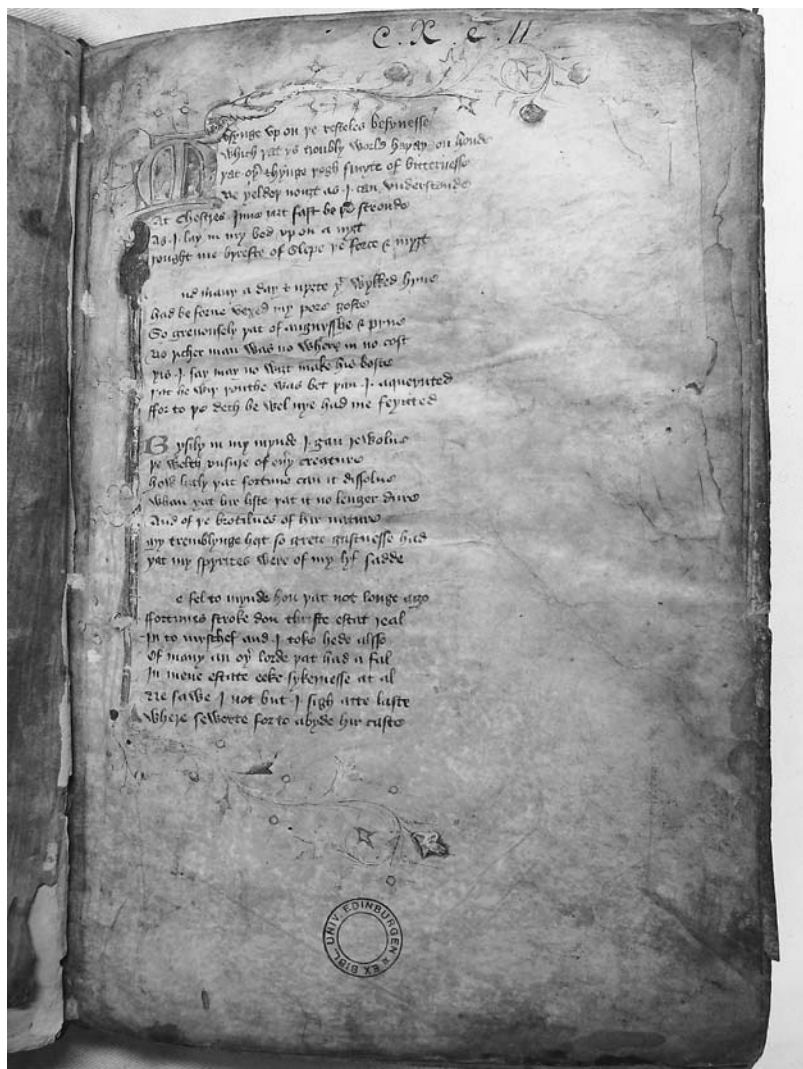 C. R. e. 11
Musynge vp on þe resteles besynesse
Which þat þis troubly world haþ ay on honde
þat oþer thynge þogh fruyte of bitternesse
Ne yeldeþ nouȝt as .I. can vnderstonde
At Chestres Inne iart fast be þe stronde
As .I. lay in my bed vp on a nyȝt
þought me byrefte of slepe þe force & myȝt
nd many a day & nyȝte þt wykked hyne
had be forne vexed my pore goste
So greuousely þat of angwysshe & pyne
No richer man was no where in no cost
þis .I. say may no wiȝt make his boste
þat he wiþ þouthe was bet þan .I. aqueynted
ffor to þe deth he wel nye had me feynted
Bysily in my mynde .I. gan reuolue
þe welth vnsure of eny creature
how litly þat fortune can it dissolue
whan þat hir liste þat it no lenger dure
And of þe brotilnes of hir nature
my tremblynge hert so grete gastnesse had
þat my spyrites were of my lyf sadde
e fel to mynde hou þat not longe ago
ffortunes stroke don thriste estat real
In to myschef and .I. toke hede also
Of many an oþer lorde þat had a fal
In mene estatte eeke sykernesse at al
Ne sawe .I. not but .I. sigh atte laste
where sewerte for to abyde hir caste
UNIV. EDINBURGEN EX BIBL